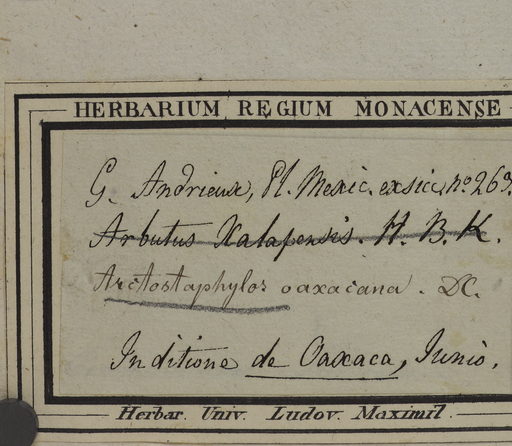 HERBARIUM REGIUM MONACENSE
G. Andrieux, Pl. Mexic. exsicc. no. 263.
Arbutus Xalapensis. H. B. K.
Arctostaphylos oaxacana. DC.
In ditione de Oaxaca, Junio.
Herbar. Univ. Ludov. Maximil.